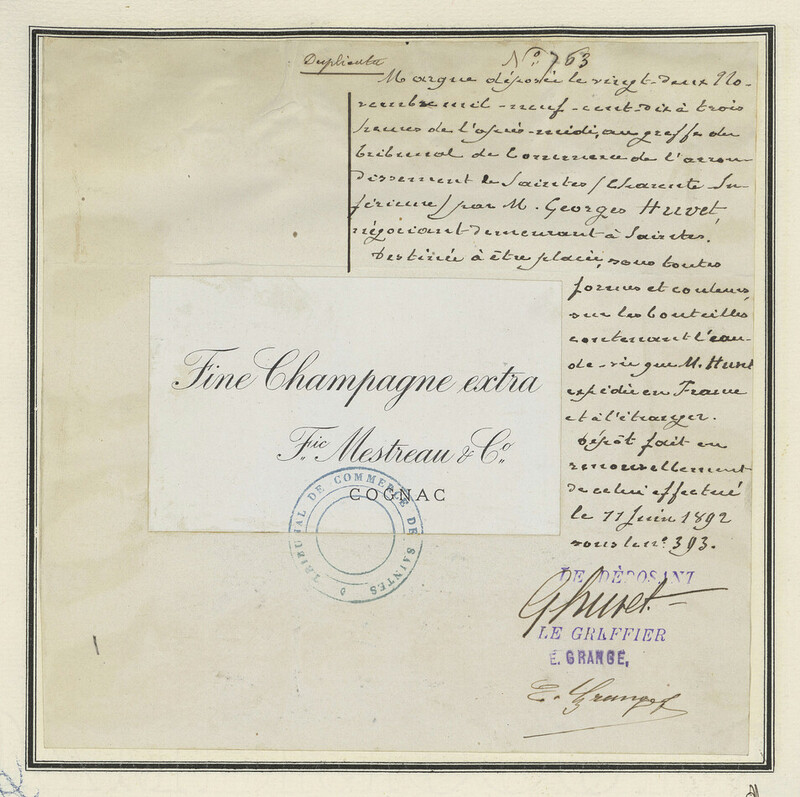 Duplicata
N° 763
Marque déposée le vingt-deux No-
vembre mil-neuf-cent-dix à trois
heures de l'après-midi, au greffe du
tribunal de Commerce de l'arron-
dissement de Saintes (Charente In-
férieure) par M. Georges Huvet,
négociant demeurant à Saintes.
Destinée à être placée, sous toutes
formes et couleurs,
sur les bouteilles
contenant l'eau-
de-vie que M. Huvet
expédie en France
et à l'étranger.
Dépôt fait en
renouvellement
de celui effectué
le 11 Juin 1892
sous le n° 393.
Fine Champagne extra
Fic Mestreau & Co
COGNAC
TRIBUNAL DE COMMERCE DE SAINTES
LE DÉPOSANT
GHuvet
LE GREFFIER
E. GRANGE,
E. Grange